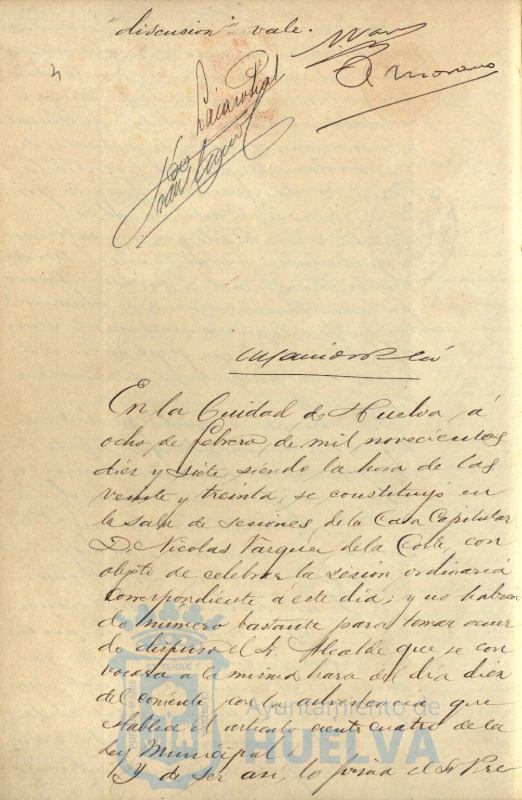 "discusion" vale.
A Moreno
En la Ciudad de Huelva, á
ocho de febrero, de mil novecientos
diez y siete, siendo la hora de las
veinte y treinta, se constituyó en
la sala de sesiones, de la Casa Capitular
D. Nicolas Vazquez de la Corte, con
objeto de celebrar la sesión, ordinaria
correspondiente a este dia; y no habien
do numero bastante para tomar acuer
do dispuso el Sr. Alcalde que se con
vocara a la misma hora del dia diez
del corriente con la advertencia que
establece el articulo ciento cuatro de la
Ley Municipal
Y de ser asi, lo firma el Sr Pre
Ayuntamiento de
HUELVA